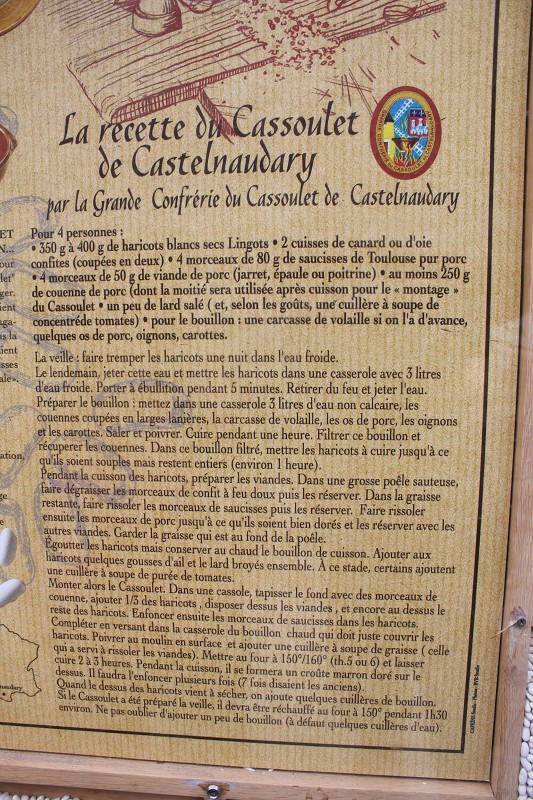 La recette du Cassoulet
de Castelnaudary
par la Grande Confrérie du Cassoulet de Castelnaudary
Pour 4 personnes :
• 350 g à 400 g de haricots blancs secs Lingots • 2 cuisses de canard ou d'oie
confites (coupées en deux) • 4 morceaux de 80 g de saucisses de Toulouse pur porc
• 4 morceaux de 50 g de viande de porc (jarret, épaule ou poitrine) • au moins 250 g
de couenne de porc (dont la moitié sera utilisée après cuisson pour le « montage »
du Cassoulet • un peu de lard salé ( et, selon les goûts, une cuillère à soupe de
concentréde tomates) • pour le bouillon : une carcasse de volaille si on l'a d'avance,
quelques os de porc, oignons, carottes.
La veille : faire tremper les haricots une nuit dans l'eau froide.
Le lendemain, jeter cette eau et mettre les haricots dans une casserole avec 3 litres
d'eau froide. Porter à ébullition pendant 5 minutes. Retirer du feu et jeter l'eau.
Préparer le bouillon : mettez dans une casserole 3 litres d'eau non calcaire, les
couennes coupées en larges lanières, la carcasse de volaille, les os de porc, les oignons
et les carottes. Saler et poivrer. Cuire pendant une heure. Filtrer ce bouillon et
récuperer les couennes. Dans ce bouillon filtré, mettre les haricots à cuire jusqu'à ce
qu'ils soient souples mais restent entiers (environ 1 heure).
Pendant la cuisson des haricots, préparer les viandes. Dans une grosse poêle sauteuse,
faire dégraisser les morceaux de confit à feu doux puis les réserver. Dans la graisse
restante, faire rissoler les morceaux de saucisses puis les réserver. Faire rissoler
ensuite les morceaux de porc jusqu'à ce qu'ils soient bien dorés et les réserver avec les
autres viandes. Garder la graisse qui est au fond de la poêle.
Egoutter les haricots mais conserver au chaud le bouillon de cuisson. Ajouter aux
haricots quelques gousses d'ail et le lard broyés ensemble. À ce stade, certains ajoutent
une cuillère à soupe de purée de tomates.
Monter alors le Cassoulet. Dans une cassole, tapisser le fond avec des morceaux de
couenne, ajouter 1/3 des haricots , disposer dessus les viandes , et encore au dessus le
reste des haricots. Enfoncer ensuite les morceaux de saucisses dans les haricots.
Compléter en versant dans la casserole du bouillon chaud qui doit juste couvrir les
haricots. Poivrer au moulin en surface et ajouter une cuillère à soupe de graisse ( celle
qui a servi à rissoler les viandes). Mettre au four à 150°/160° (th.5 ou 6) et laisser
cuire 2 à 3 heures. Pendant la cuisson, il se formera un croûte marron doré sur le
dessus. Il faudra l'enfoncer plusieurs fois (7 fois disaient les anciens).
Quand le dessus des haricots vient à sécher, on ajoute quelques cuillères de bouillon.
Si le Cassoulet a été préparé la veille, il devra être réchauffé au four à 150° pendant 1h30
environ. Ne pas oublier d'ajouter un peu de bouillon (à défaut quelques cuillères d'eau).